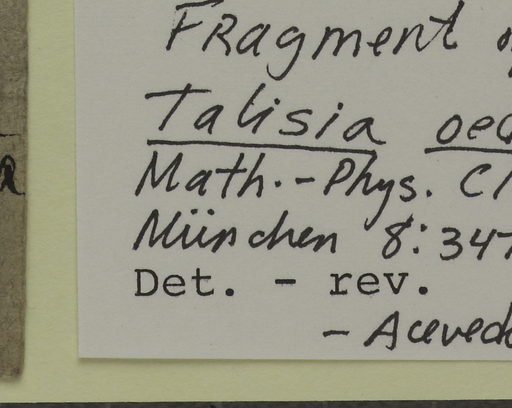 Fragment
Talisia
Math.-Phys.
München 8:347
Det. - rev.
- Acevedo
a